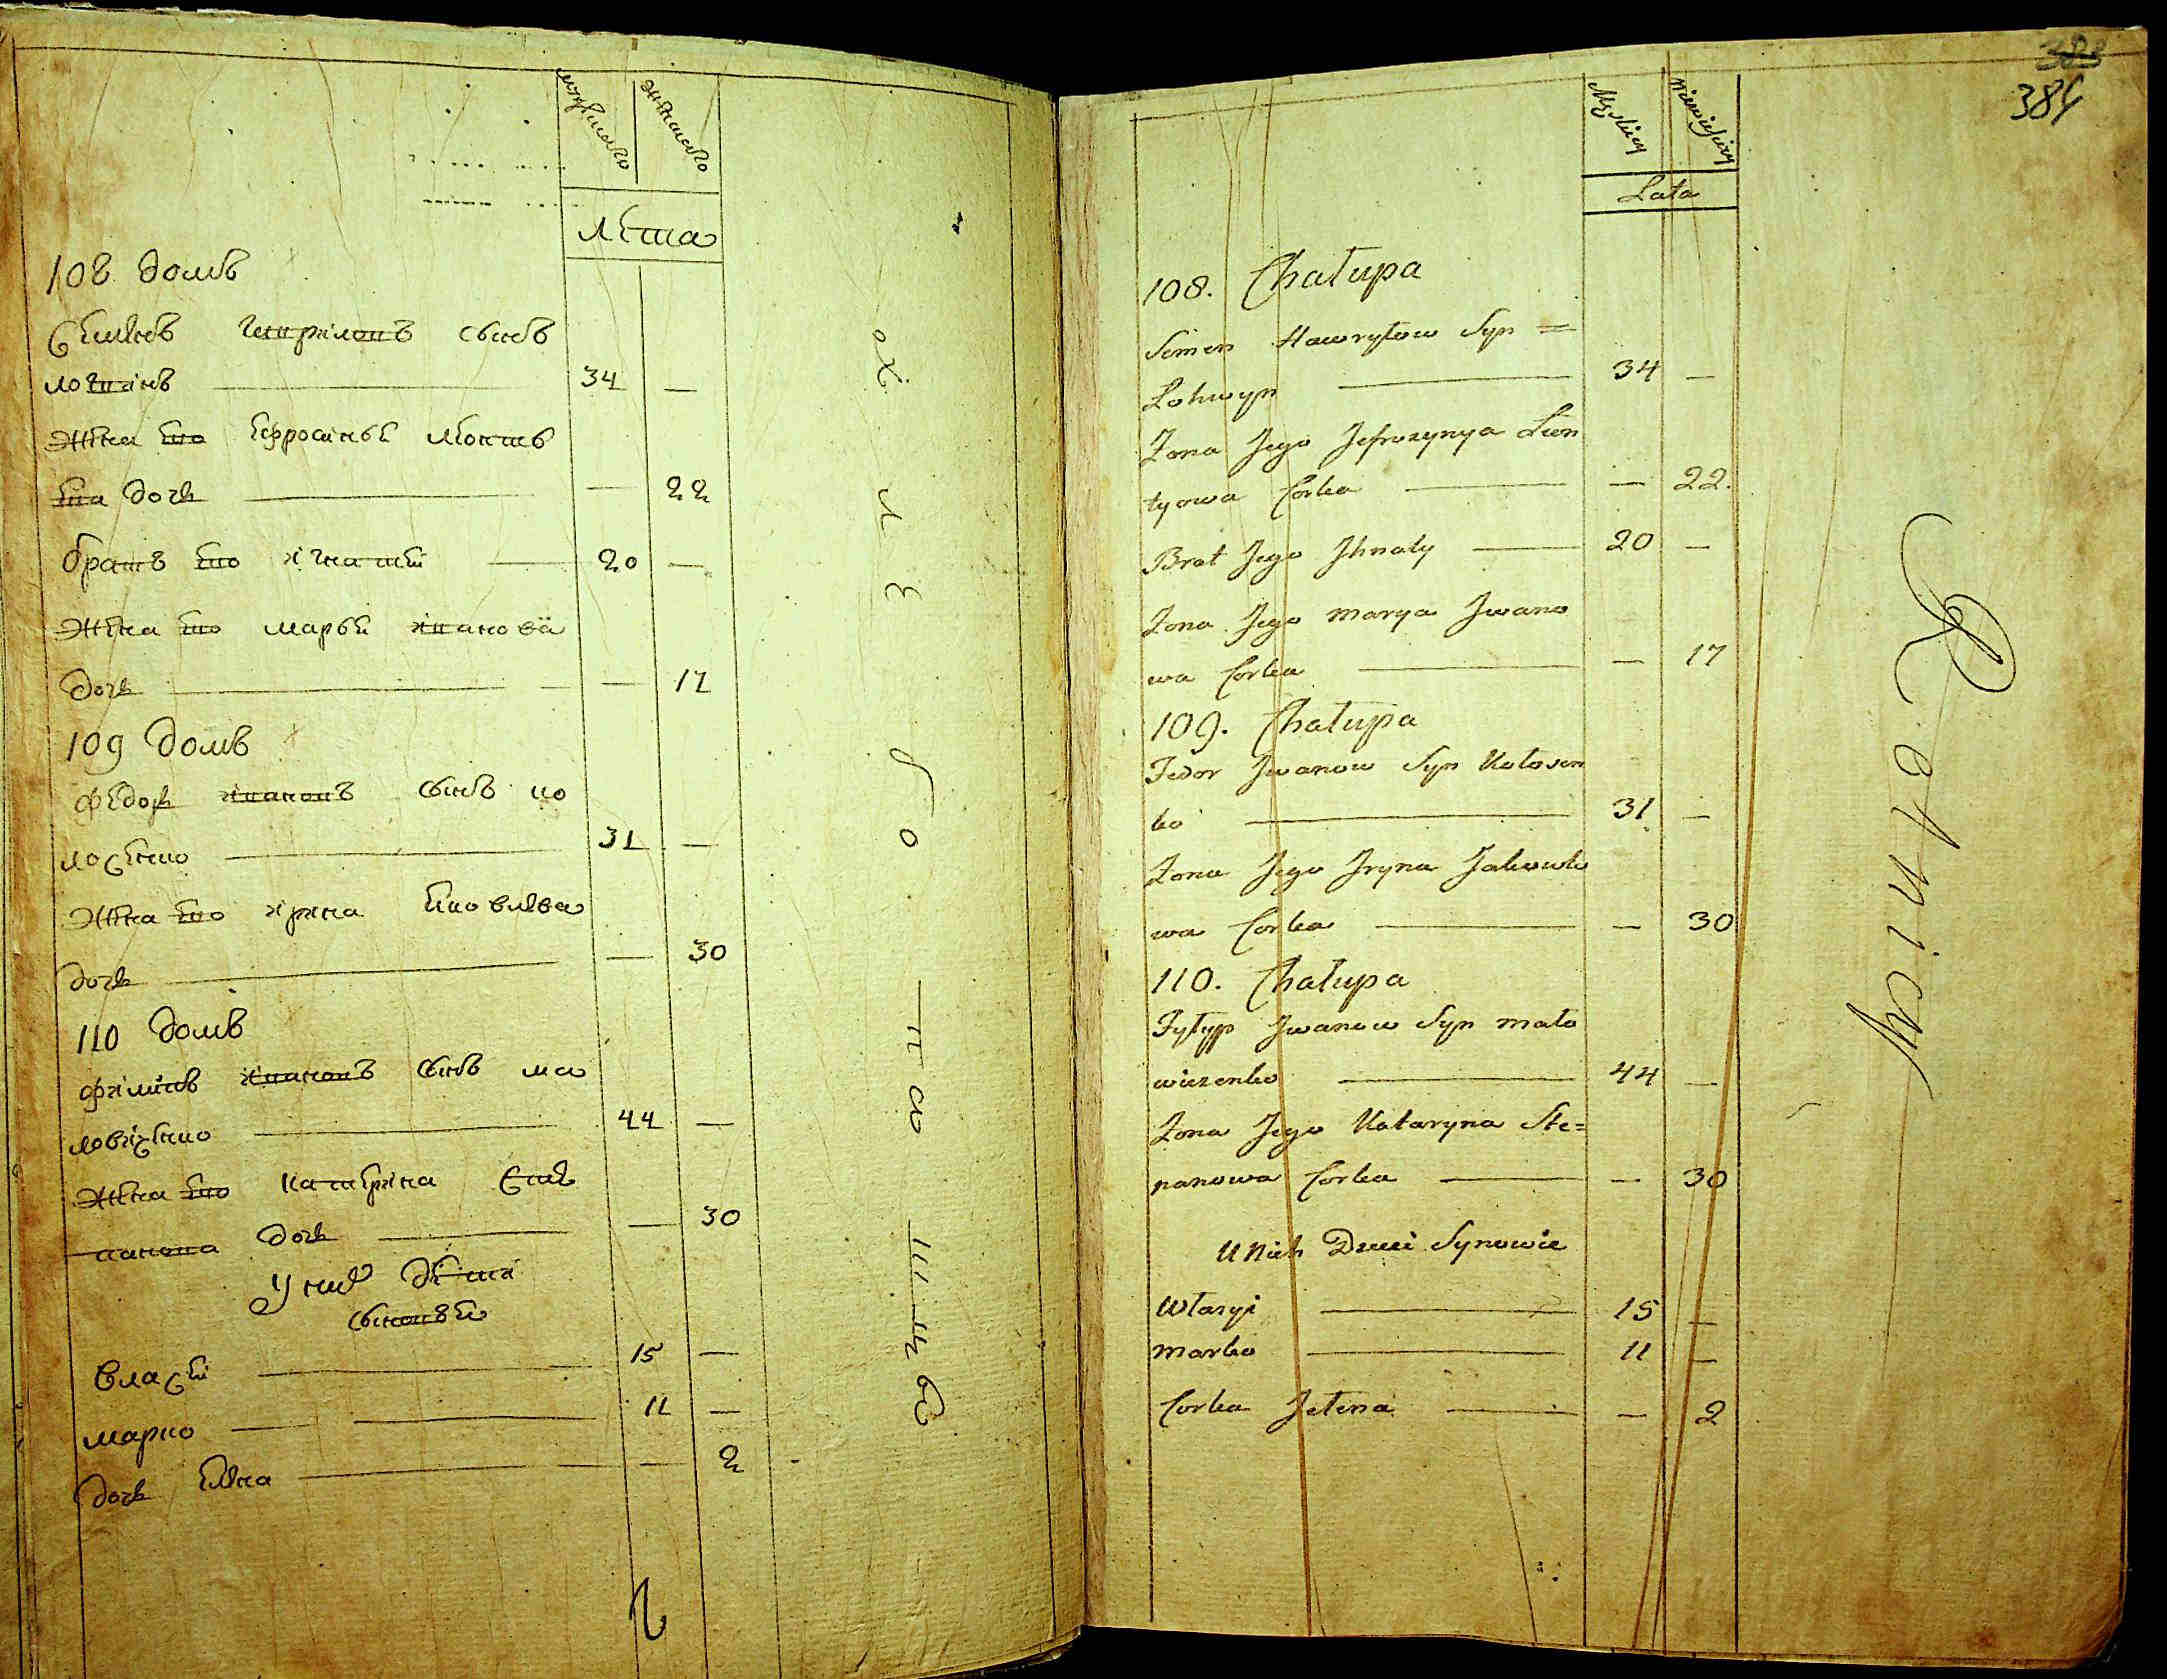 мужеска
женска
лета
108 домъ
Семенъ Гавриловъ сынъ
логвинъ 34 —
жена его ефросиньѣ леонть
ева дочь — 22
братъ его игнатей 20 —
жена его марьѣ иванова
дочь — 17
109 домъ
федоръ ивановъ сынъ ко
лосенко 31 —
жена его ирина яковлева
дочь — 30
110 домъ
филипъ ивановъ сынъ ма
ловиченко 44 —
жена его катерина сте
панова дочь — 30
У них дети
сыновья
власей 15 —
марко 11 —
дочь елена — 2
хлебопашцы
384
Męskiey
niewieściey
Lata
108. Chałupa
Semen Hawryłow Syn =
Lohwyn 34 —
Zona Jego Jefrozynya Leon
tyowa Corka — 22.
Brat Jego Jhnaty 20 —
Zona Jego Marya Jwano
wa Corka — 17
109. Chałupa
Fedor Jwanow Syn Kołosen
ko 31 —
Zona Jego Jryna Jakowle
wa Corka — 30
110. Chałupa
Fyłypp Jwanow Syn Mało
wiczenko 44 —
Zona Jego Kataryna Ste=
panowa Corka — 30
U Nich Dwei Synowie
Własyi 15 —
Marko 11 —
Corka Jełena — 2
Rolnicy